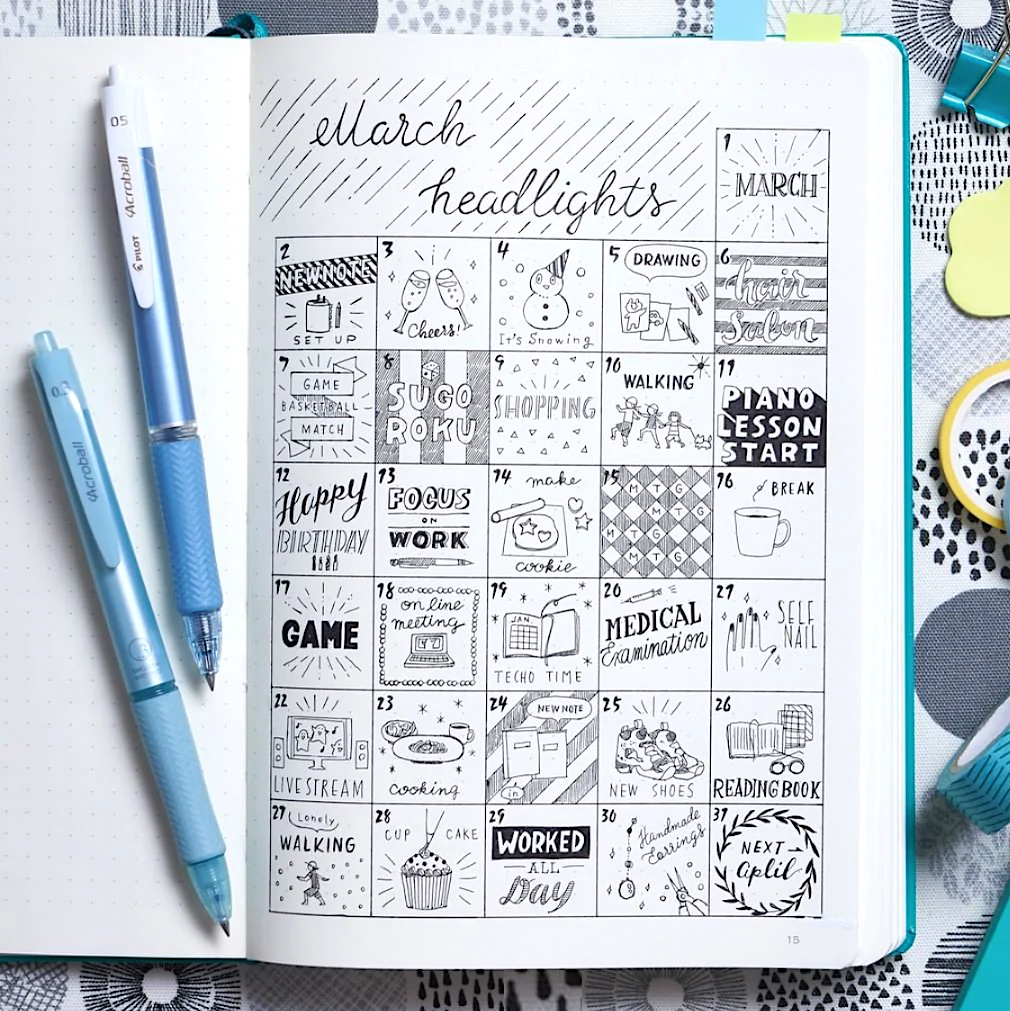 0.5
Acroball
PILOT
0.3
Acroball
March
headlights
1
MARCH
2
NEWNOTE
SET UP
3
Cheers!
4
It's Snowing
5
DRAWING
6
hair
Salon
7
GAME
BASKETBALL
MATCH
8
SUGO
ROKU
9
SHOPPING
10
WALKING
11
PIANO
LESSON
START
12
Happy
BIRTHDAY
13
FOCUS
ON
WORK
14
make
cookie
15
M T G
M T G
M T G
M T G
16
BREAK
17
GAME
18
on line
meeting
19
JAN
TECHO TIME
20
MEDICAL
Examination
21
SELF
NAIL
22
LIVESTREAM
23
cooking
24
NEW NOTE
in
25
NEW SHOES
26
READING BOOK
27
Lonely
WALKING
28
CUP CAKE
29
WORKED
ALL
Day
30
Handmade
Earrings
31
NEXT
Aplil
15